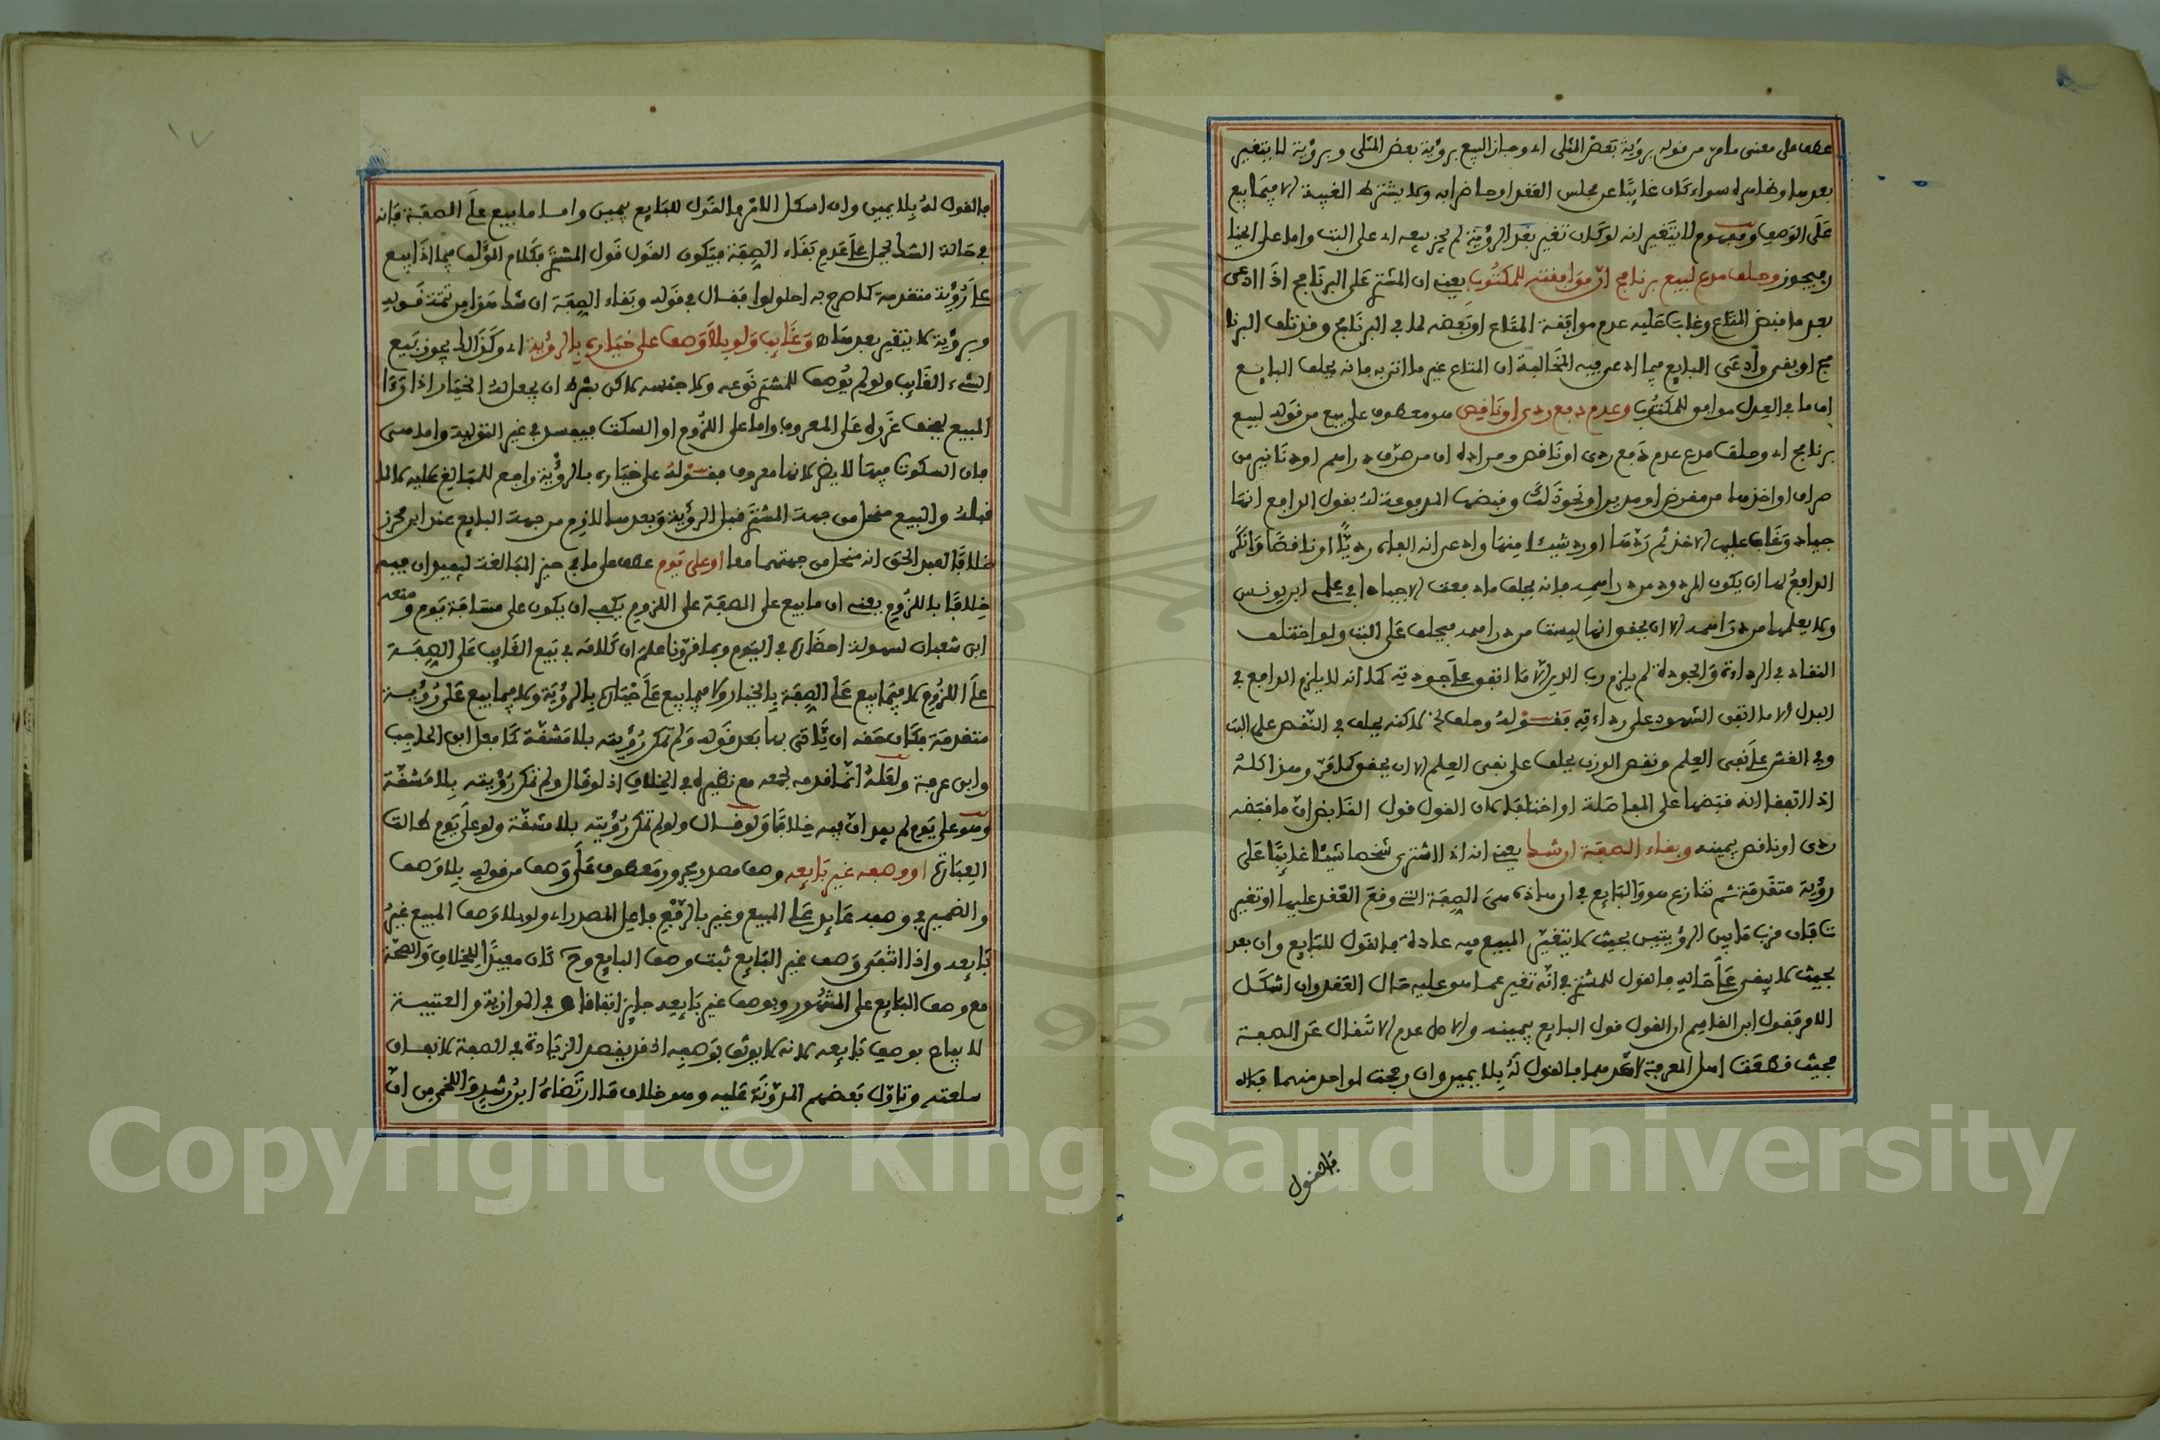 عطف على معنى ما مر من قوله برؤية بعض المثلى اى وجاز البيع برؤية بعض المثلى وبرؤية لا يتغير
بعدها وظاهره سواء كان غايبا عن مجلس العقد او حاضرا به ولا يشترط الغيبة الا فيما بيع
على الوصف ومفهوم لا يتغير انه لو كان تغير بعد الرؤية لم يجز بيعه اى على البت واما على الخيا
ر فيجوز وحلف مدع لبيع برنامج ان موافقته للمكتوب يعنى ان المشترى على البرنامج اذا ادعى
بعد ما قبض المتاع وغاب عليه عدم موافقة المتاع او بعضه لما فى البرنامج وقد تلف البرنا
مج او بقى وادعى البايع فيما ادعى فيه المخالفة ان المتاع غير ما اتى به فانه يحلف البايع
ان ما فى العدل موافق للمكتوب وعدم دفع ردى او ناقص هو معطوف على بيع من قوله لبيع
برنامج اى وحلف مدع عدم دفع ردى او ناقص ومراده ان من صرف دراهم او دنانير من
صراف او اخذها من مقرض او مدين او نحو ذلك وقبضها المدفوعة له بقول الدافع انها
جياد وغاب عليها الاخذ ثم ردها او رد شيئا منها وادعى انه الفاه رديا او ناقصا وانكر
الدافع لها ان يكون المردود من دراهمه فانه يحلف ما دفعت الا جيادا فى علمه ابن يونس
ولا يعلمها من دراهمه الا ان يحقق انها ليست من دراهمه فيحلف على البت ولو اختلف
النقاد فى الرداءة والجودة لم يلزم رب الدين الا ما اتفق على جودته كما انه لا يلزم الدافع فى
البدل الا ما اتفق الشهود على رداءته فقوله وحلف الخ لاكنه يحلف فى النقص على البت
وفى الغش على نفى العلم ونقص الوزن يحلف على نفى العلم الا ان يحقق كما مر وهذا كله
اذا اتفقا انه قبضها على المفاصلة او اختلفا كان القول قول القابض ان ما قبضه
ردى او ناقص بيمينه وبقاء الصفة ان شك يعنى انه اذا اشترى شخص شيئا غايبا على
رؤية متقدمة ثم تنازع هو والبايع فى ان هاذه هى الصفة التى وقع العقد عليها او تغير
ت فان قرب ما بين الرؤيتين بحيث لا يتغير المبيع فيه عادة فالقول للبايع وان بعد
بحيث لا يبقى على حاله فالقول للمشترى فى انه تغير عما هو عليه حال العقد وان اشكل
الامر فقول ابن القاسم ان القول قول البايع بيمينه والاصل عدم الانتقال عن الصفة
فحيث قطعت اهل المعرفة لاحدهما فالقول له بلا يمين وان رجحت لواحد منهما
فالقول
١٧
فالقول له بلا يمين وان اشكل الامر فالقول للبايع بيمين واما ما بيع على الصفة فانه
فى حالة الشك يحمل على عدم بقاء الصفة فيكون القول قول المشترى فكلام المؤلف فيما اذا بيع
على رؤية متقدمة كما صرح به احلولوا فقال فى قوله وبقاء الصفة ان شك هو من تتمة قوله
وبرؤية لا يتغير بعدها وغايب ولو بلا وصف على خياره بالرؤية اى وكذالك يجوز بيع
الشىء الغايب ولو لم يوصف للمشترى نوعه ولا جنسه لاكن بشرط ان يجعل له الخيار اذا راا
المبيع يخف غرره على المعروف واما على اللزوم او السكت فيفسد فى غير التولية واما هى
فان السكوت فيها لا يضر لانها معروف فقوله على خياره بالرؤية راجع للمبالغ عليه لا لما
قبله والبيع منحل من جهة المشترى قبل الرؤية وبعدها لازم من جهة البايع عند ابن محرز
خلافا لعبد الحق انه منحل من جهتهما معا او على يوم عطف على ما فى حيز المبالغة ليفيد ان فيه
خلافا باللزوم يعنى ان ما بيع على الصفة على اللزوم يكفى ان يكون على مسافة يوم ومنعه
ابن شعبان لسهولة احضاره فى اليوم وبما قررنا علم ان كلامه فى بيع الغايب على الصفة
على اللزوم لا فيما بيع على الصفة بالخيار ولا فيما بيع على خياره بالرؤية ولا فيما بيع على رؤية
متقدمة فكان حقه ان ياتى بها بعد قوله ولم تمكن رؤيته بلا مشقة كما فعل ابن الحاجب
وابن عرفة ولعله انما قدمه لجمعه مع نظيره فى الخلاف اذ لو قال ولم تمكن رؤيته بلا مشقة
وهو على يوم لم يفد ان فيه خلافا ولو قال ولو لم تمكن رؤيته بلا مشقة ولو على يوم لطالت
العبارة او وصفه غير بايعه وصف مصدر مجرور معطوف على وصف من قوله بلا وصف
والضمير فى وصفه عايد على المبيع وغير بالرفع فاعل المصدر اى ولو بلا وصف المبيع غير
بايعه واذا انتفى وصف غير البايع ثبت وصف البايع وح كان مفيدا للخلاف والصحة
مع وصف البايع على المشهور وبوصف غير بايعه جايز اتفاقا وفى الموازية والعتبية
لا يباع بوصف بايعه لانه لا يوثق بوصفه اذ قد يقصد الزيادة فى الصفة لانفاق
سلعته وتاول بعضهم المدونة عليه وهو خلاف ما ارتضاه ابن رشد واللخمى من ان